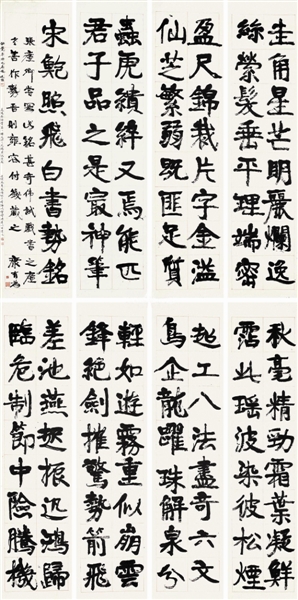 圭角星芒明麗爛逸
絲縈髮垂平理端密
盈尺錦裁片字金溢
仙芝繁弱既匪足質
蟲虎績綷又焉能匹
君子品之是最神筆
宋鮑照飛白書勢銘
張廉卿書
康有為
秋毫精勁霜葉凝鮮
霑此瑤波染彼松煙
起工八法盡奇六文
鳥企龍躍珠解泉分
輕如遊霧重似崩雲
鋒絕劍摧驚勢箭飛
差池燕起振迅鴻歸
臨危制節中險騰機